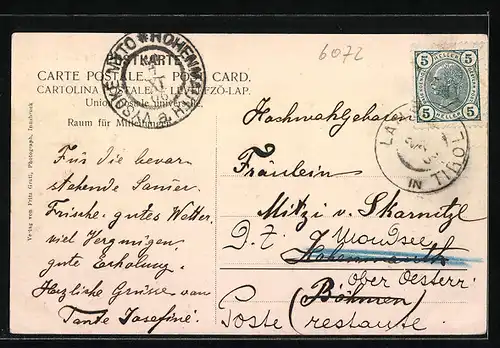 6072
POSTKARTE
CARTE POSTALE. POST CARD.
CARTOLINA POSTALE. LEVELEZŐ-LAP.
Union postale universelle.
Raum für Mitteilungen.
HOHENMAUTH * VYSOKÉ MÝTO
5 5
HELLER HELLER
5 5
IN TIROL
Verlag von Fritz Gratl, Photograph, Innsbruck
Für die bevor-
stehende Saison
Frische. gutes Wetter,
viel Vergnügen,
gute Erholung.
Herzliche Grüsse von
Tante Josefine.
Hochwohlgeboren
Fräulein
Mitzi v. Skarnitzl
Mondsee
Hohenmauth
Ober Oesterr:
Böhmen
Poste (restante)